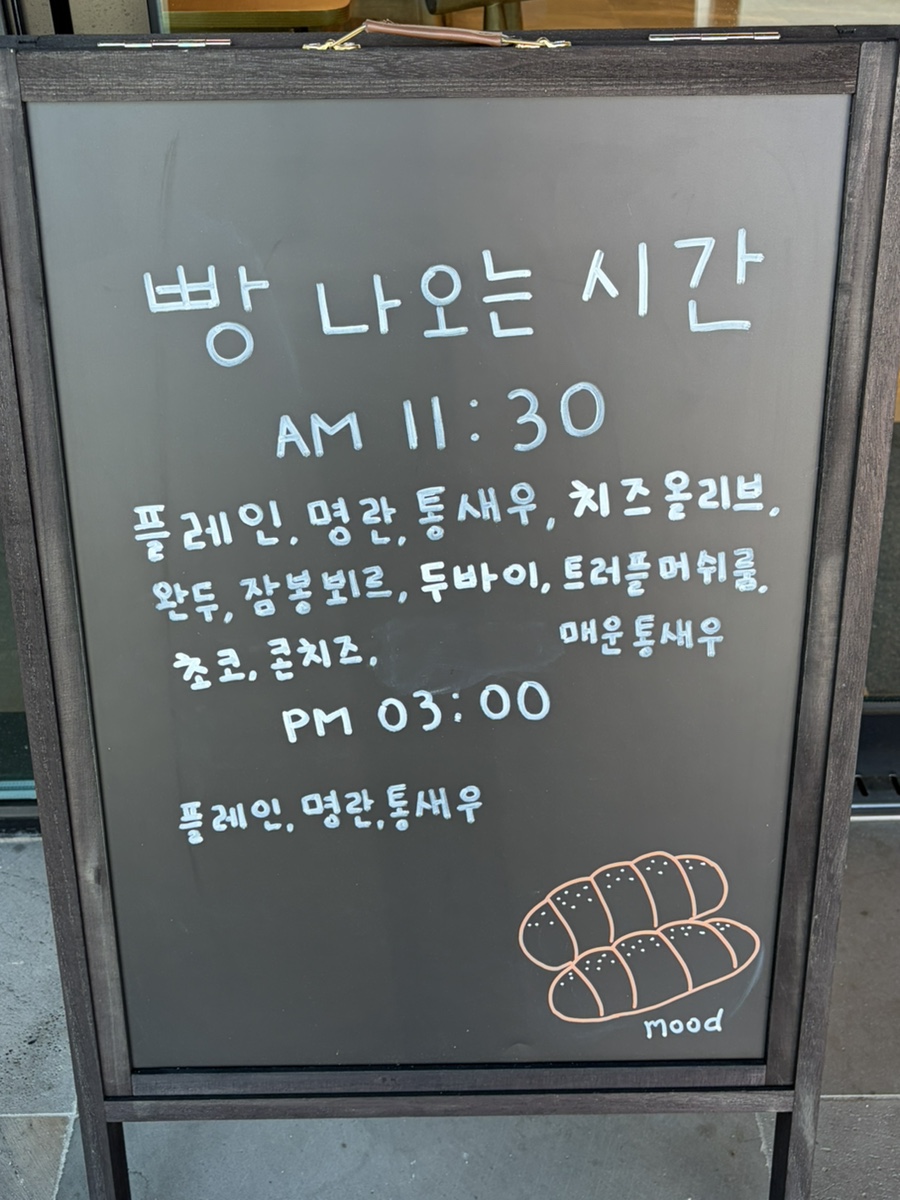 빵 나오는 시간
AM 11:30
플레인, 명란, 통새우, 치즈올리브,
완두, 잠봉뵈르, 두바이, 트러플머쉬룸,
초코, 콘치즈, 매운통새우
PM 03:00
플레인, 명란, 통새우
mood